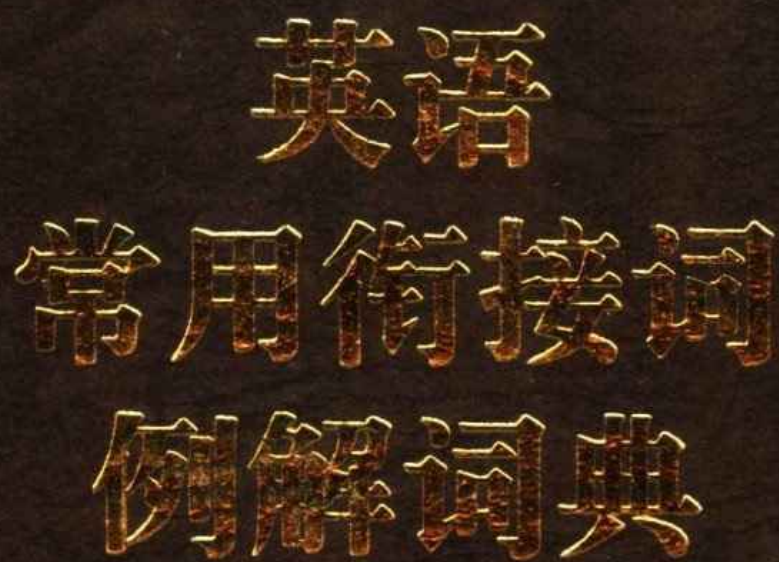 英语
常用衔接词
例解词典